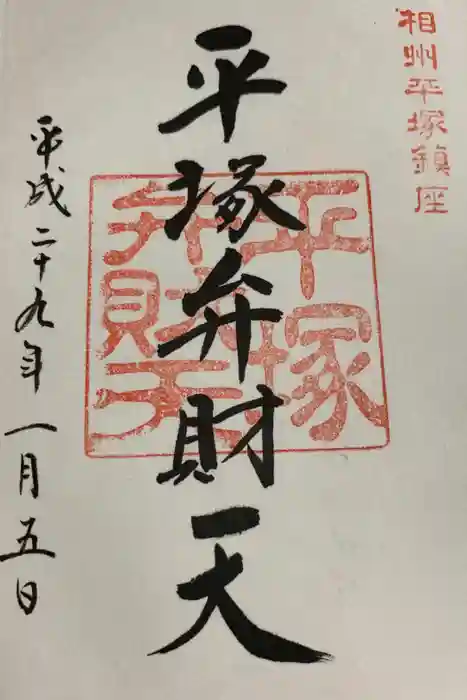 相州平塚鎮座
平塚弁財天
平塚
弁財天
平成二十九年一月五日